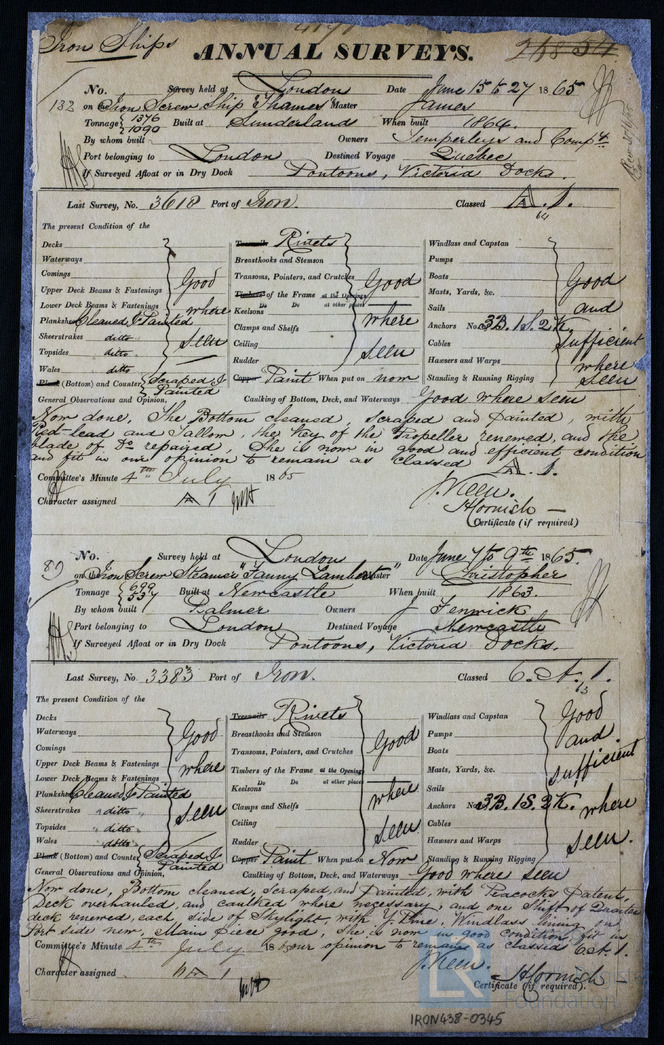 Iron Ships
ANNUAL SURVEYS.
No. 132 Survey held at London Date June 15 to 27 1865
on the Iron Screw Ship "Thames" Master James
Tonnage 1376 1090 Built at Sunderland When built 1864.
By whom built Owners Temperleys and Compy.
Port belonging to London Destined Voyage Quebec
If Surveyed Afloat or in Dry Dock Pontoons, Victoria Docks.
Last Survey, No. 3618 Port of Iron. Classed A.1.
The present Condition of the
Decks
Waterways
Comings
Upper Deck Beams & Fastenings
Lower Deck Beams & Fastenings
Good where seen
Planksheers Cleaned & Painted
Sheerstrakes ditto
Topsides ditto
Wales ditto
Plank (Bottom) and Counter Scraped & Painted
Treenails Rivets
Breasthooks and Stemson
Transoms, Pointers, and Crutches
Timbers of the Frame at the Openings
Do Do at other places
Keelsons
Clamps and Shelfs
Ceiling
Rudder
Good where seen
Copper Paint When put on now
Windlass and Capstan
Pumps
Boats
Masts, Yards, &c.
Sails
Anchors No. 3B. 1S. 2K.
Cables
Hawsers and Warps
Standing & Running Rigging
Good and sufficient where seen
General Observations and Opinion. Caulking of Bottom, Deck, and Waterways Good where seen
Now done, The Bottom cleaned, scraped and Painted, with
Red-lead and Tallow, the key of the Propeller renewed, and the
blades of Do repaired, She is now in good and efficient condition
and fit in our opinion to remain as classed A.1.
Committee's Minute 4th July 1865
Character assigned A 1
Certificate (if required)
No. 89 Survey held at London Date June 7 to 9th 1865.
on the Iron Screw Steamer "Fanny Lambert" Master Christopher
Tonnage 699 537 Built at Newcastle When built 1863.
By whom built Palmer Owners J Fenwick
Port belonging to London Destined Voyage Newcastle
If Surveyed Afloat or in Dry Dock Pontoons, Victoria Docks.
Last Survey, No. 3383 Port of Iron. Classed
The present Condition of the
Decks
Waterways
Comings
Upper Deck Beams & Fastenings
Lower Deck Beams & Fastenings
Good where seen
Planksheers Cleaned & Painted
Sheerstrakes ditto
Topsides ditto
Wales ditto
Plank (Bottom) and Counter Scraped & Painted
Treenails Rivets
Breasthooks and Stemson
Transoms, Pointers, and Crutches
Timbers of the Frame at the Openings
Do Do at other places
Keelsons
Clamps and Shelfs
Ceiling
Rudder
Good where seen
Copper Paint When put on Now
Windlass and Capstan
Pumps
Boats
Masts, Yards, &c.
Sails
Anchors No. 3B. 1S. 2K.
Cables
Hawsers and Warps
Standing & Running Rigging
Good and sufficient where seen.
General Observations and Opinion, Caulking of Bottom, Deck, and Waterways Good where seen
Now done, Bottom cleaned, scraped, and Painted, with Peacocks Patent,
Deck overhauled, and caulked where necessary, and one Shift of Quarter
deck renewed, each side of Skylight, with Y. Pine, Windlass lining on
Port side new, Main piece good, She is now in good condition, fit in
our opinion to remain as classed
Committee's Minute 4th July 18
Character assigned
Certificate (if required).
Foundation
IRON438-0345